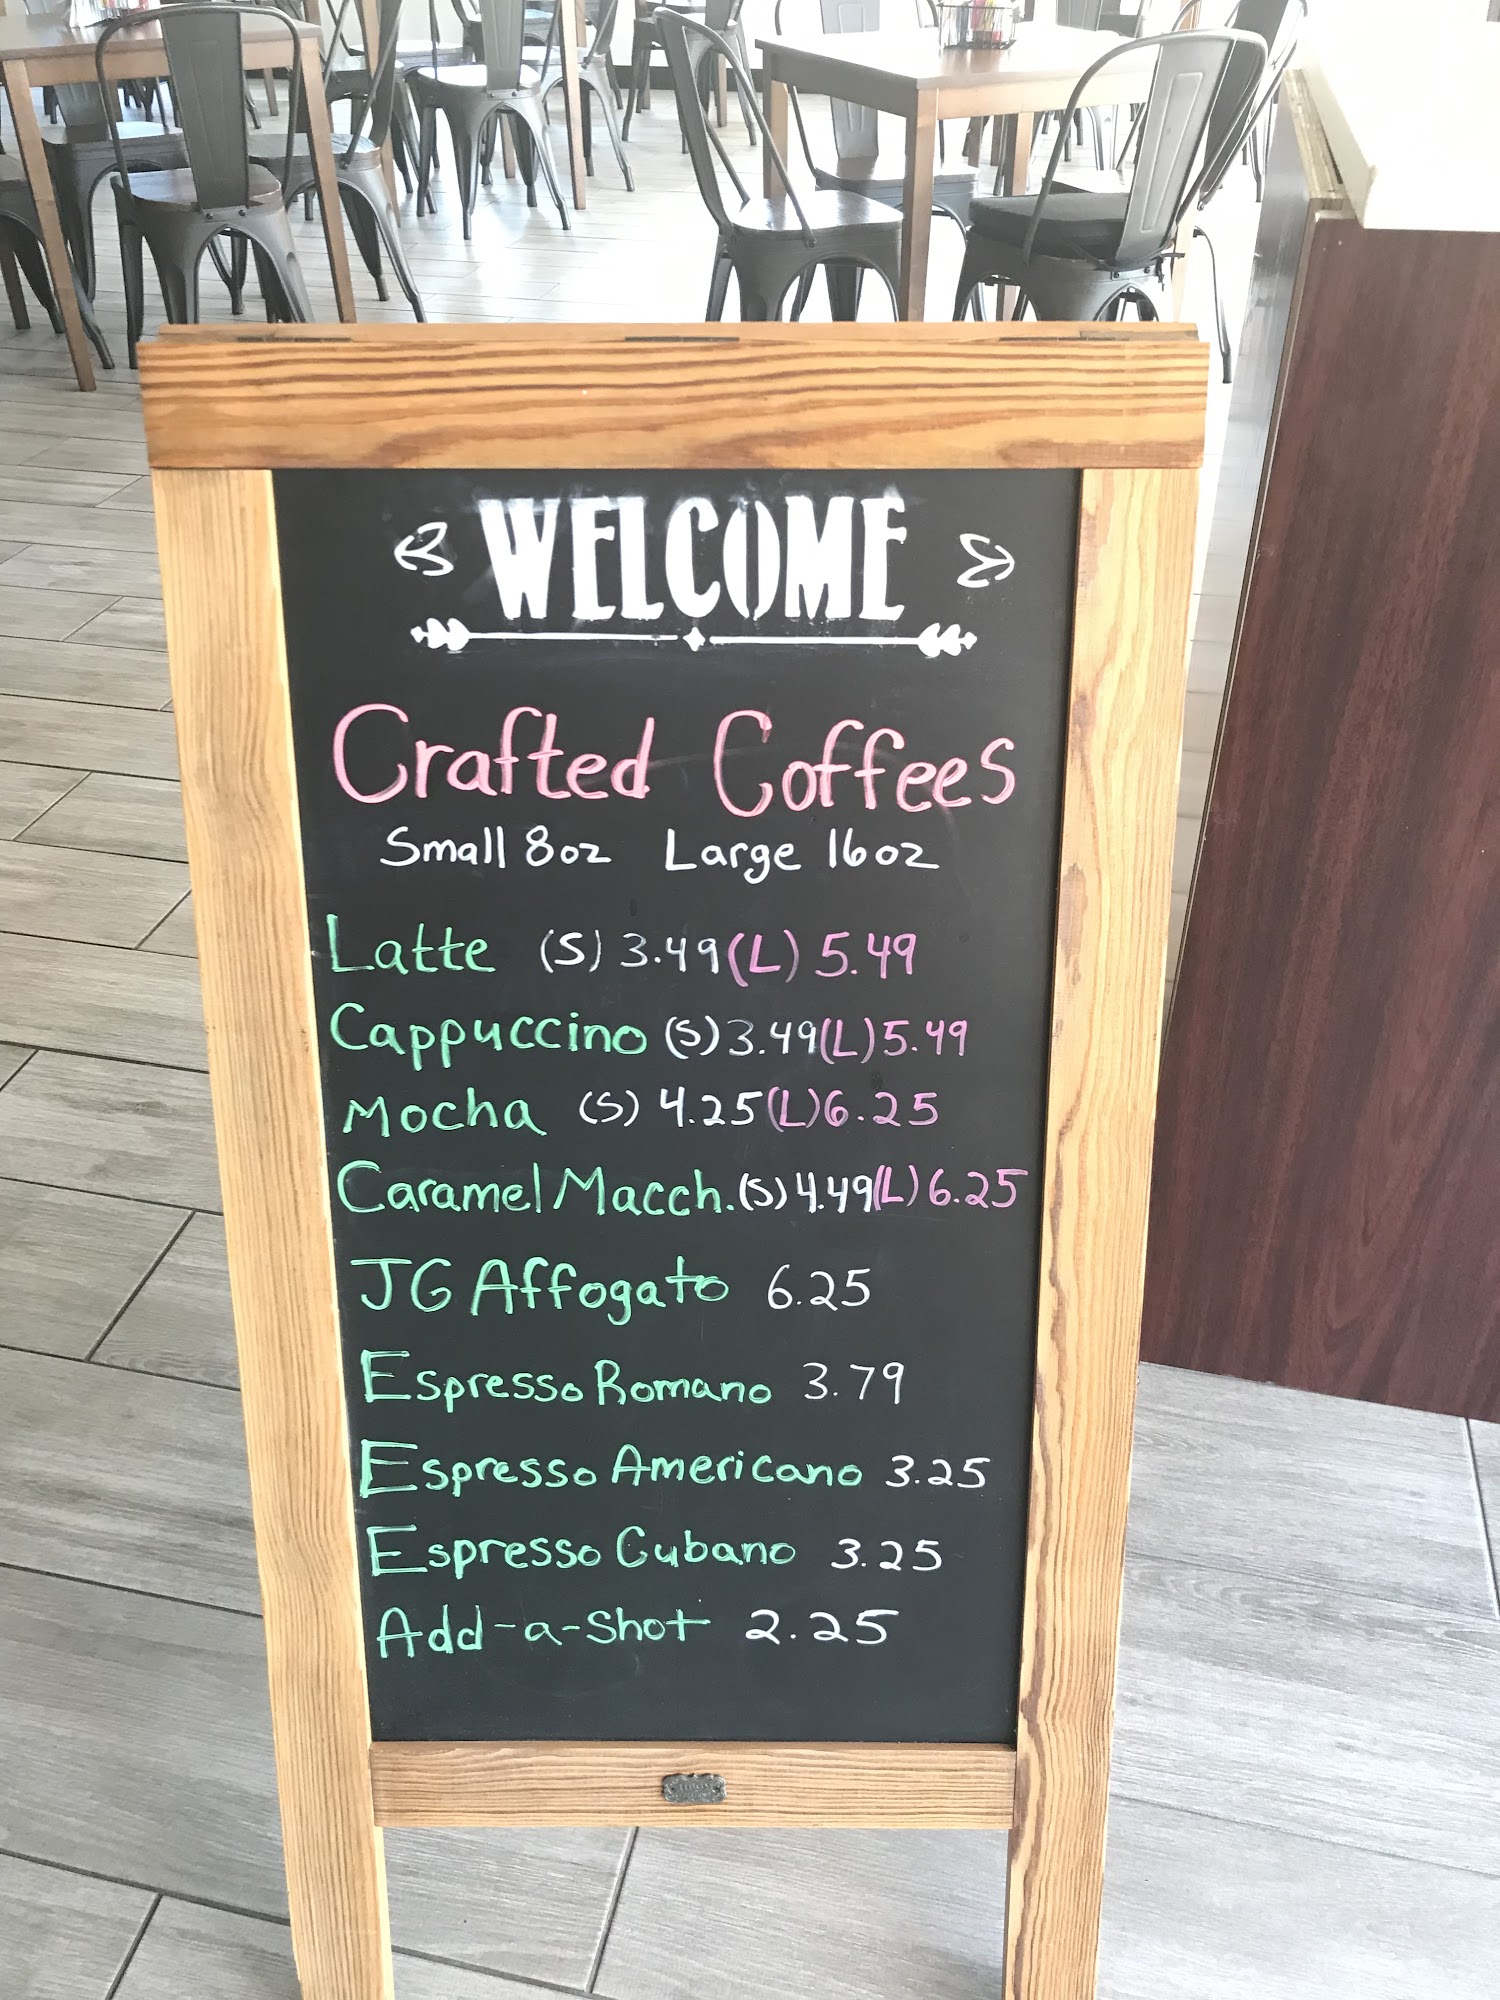 WELCOME
Crafted Coffees
Small 8oz Large 16oz
Latte (S) 3.49 (L) 5.49
Cappuccino (S) 3.49 (L) 5.49
Mocha (S) 4.25 (L) 6.25
Caramel Macch. (S) 4.49 (L) 6.25
JG Affogato 6.25
Espresso Romano 3.79
Espresso Americano 3.25
Espresso Cubano 3.25
Add-a-Shot 2.25